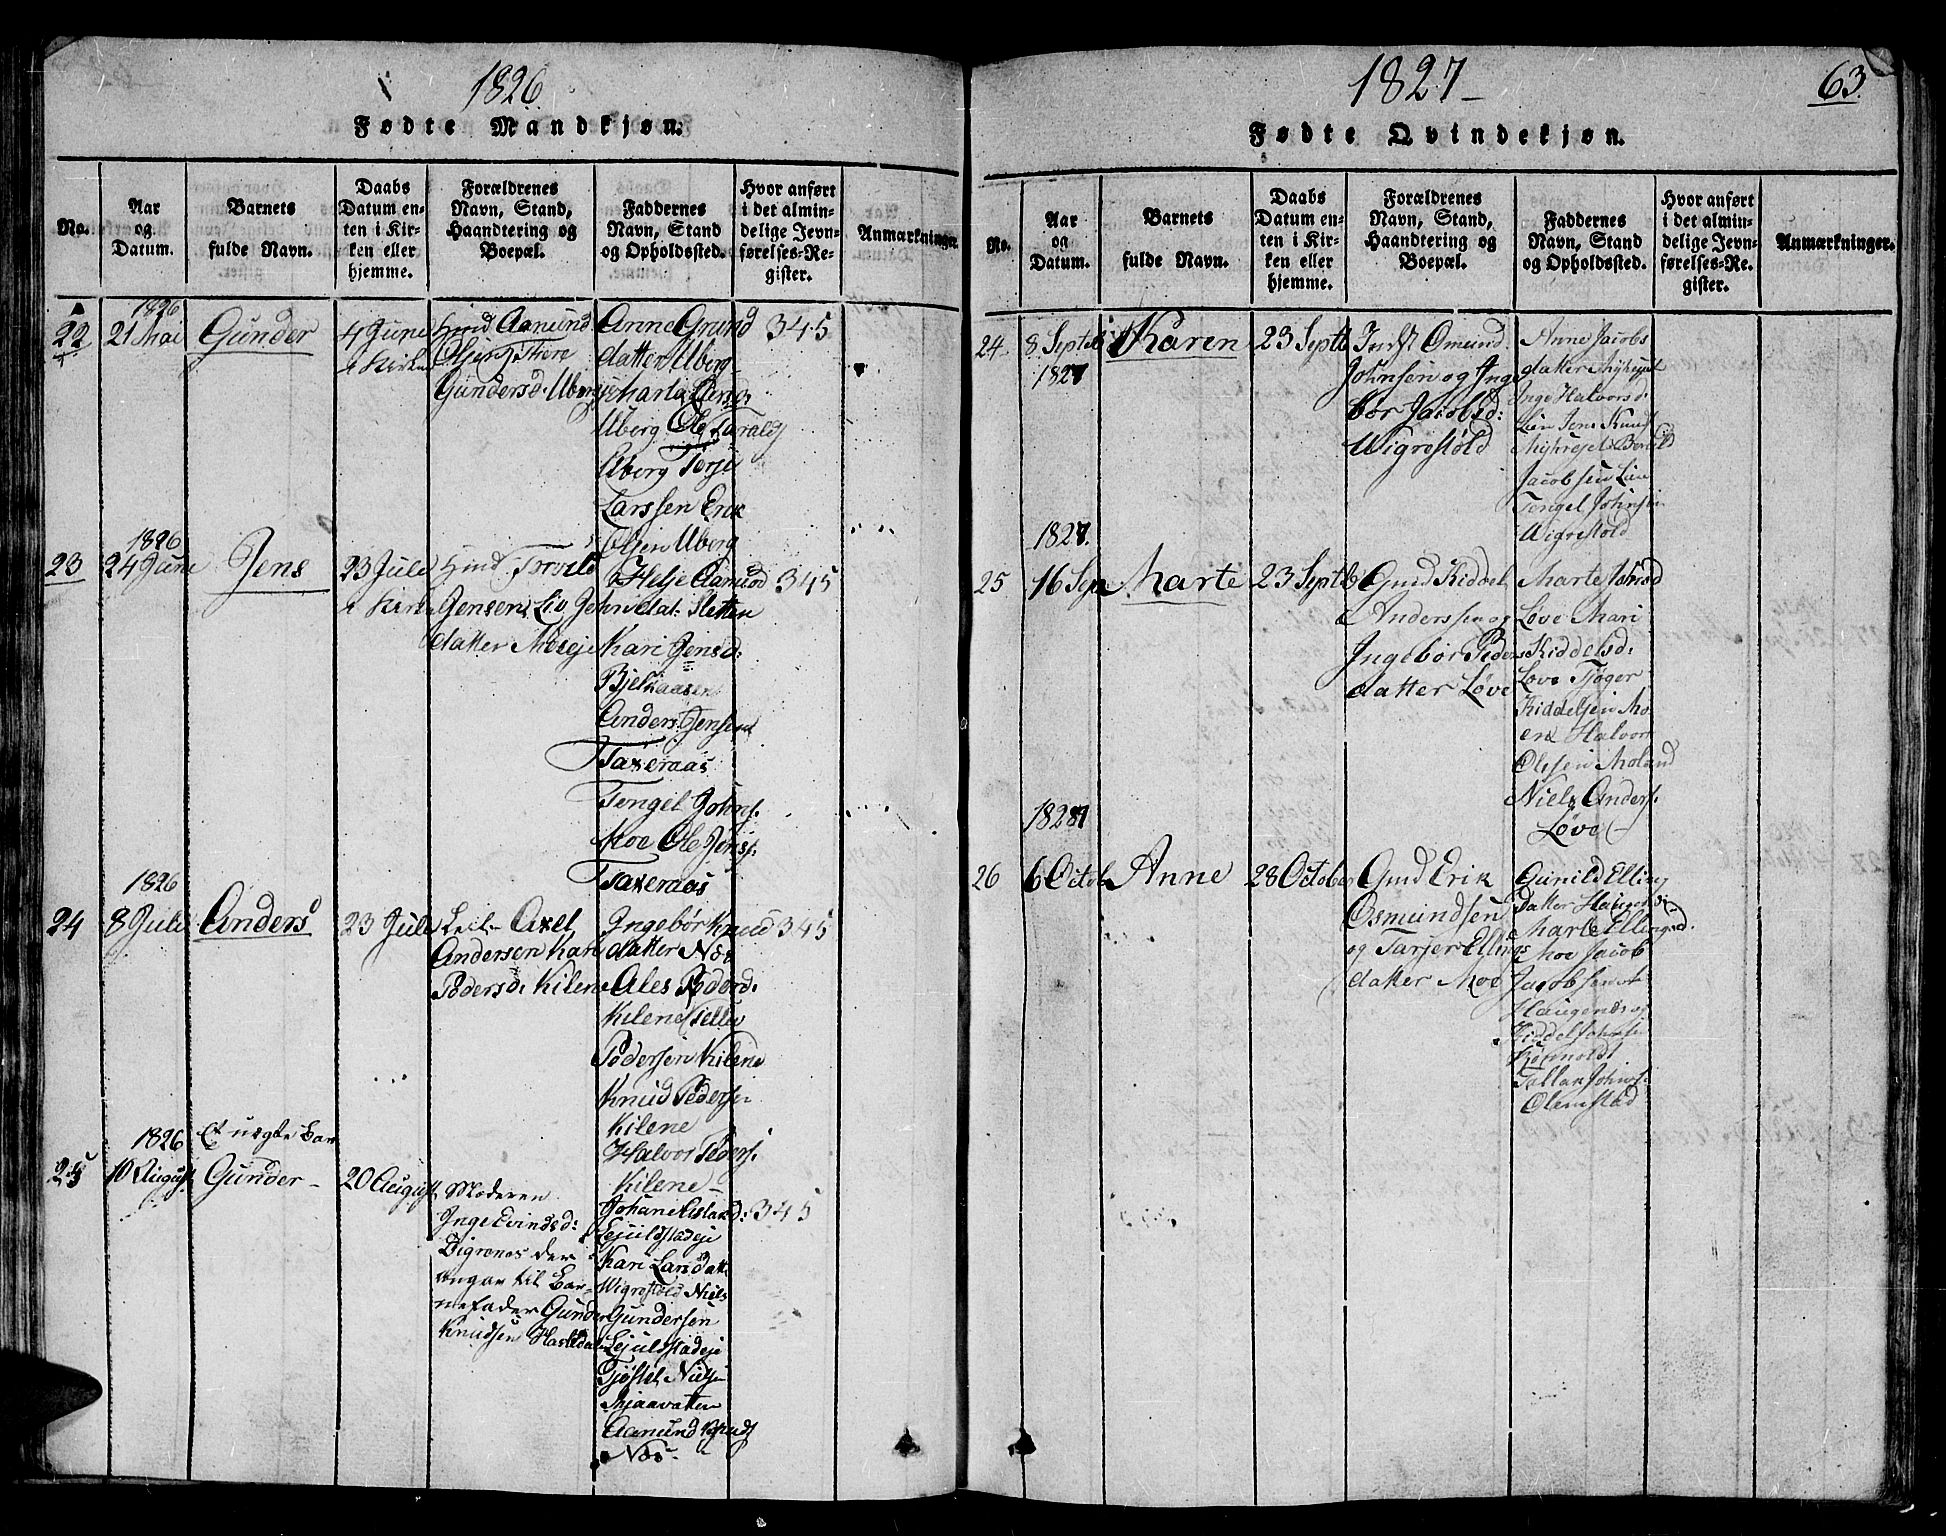 1826
Fødte Mandkjøn.
No.
Aar og Datum.
Barnets fulde Navn.
Daabs Datum enten i Kirken eller hjemme.
Forældrenes Navn, Stand, Haandtering og Boepæl.
Faddernes Navn, Stand og Opholdssted.
Hvor anført i det almindelige Jevnførelses-Register.
Anmærkninger.
1826
22
21 Mai
Gunder
4 Juni
i Kirken
Aamund
Gundersd: Uberg
Anne Amund
datter Uberg
Marta
Uberg Ole Tarald
Uberg Terje
Larssen Erik
Olsen Uberg
345
1826
23
24 Juni
Jens
23 Jule
i Kirke
Jensen Liv John
datter Moseje
Helje Aamud
dat: Sletten
Kari Jensd:
Bjelkaasen
Anders Jensen
Taxeraas
Tengel Johns.
Moe Ole Jens.
Taxeraas
345
1826
24
8 Juli
Anders
23 Jule
Leil- Axel
Andersen Kari
Pedersd: Kilene
Ingebør Knud
datter Næs
Ales Pederd:
Kilene Tellev
Pedersen Kilene
Knud Pedersen
Kilene
Halvor Peders.
Kilene
345
1826
25
10 August
Et uægte Barn
Gunder
20 August
Moderen
Inge Evindsd:
Digrenes der
angav til Bar-
nefader Gunder
Knudsen
Kari Larsdatt
Wigrestøld Niels
Gundersen
Tjøstel Nielsen
Skjaavatten
Aamund Knuds
Næs
345
1827
63.
Fødte Qvindekjøn.
No.
Aar og Datum.
Barnets fulde Navn.
Daabs Datum enten i Kirken eller hjemme.
Forældrenes Navn, Stand, Haandtering og Boepæl.
Faddernes Navn, Stand og Opholdssted.
Hvor anført i det almindelige Jevnførelses-Register.
Anmærkninger.
24
8 Septeb
1827
Karen
23 Septb
Indst Omund
Johnsen og Inge
bør Jacobsd:
Wigrestøld
Anne Jacobs
datter
Inge Halvorsd
Lien Jens Knuds
Jacobsen Lien
Tengel Johnsen
Wigrestøld
1827.
25
16 Sep
Marte
23 Septb
Gmd Kiddel
Anderssen og
Ingebor Peders
datter Løve
Marte Johnsd
Løve Mari
Kiddelsd:
Løve Tjøger
Kiddelsen Mo-
en Halvor
Olssen Moland
Niels Anders.
Løve
1827
26
6 Octob
Anne
28 October
Gmd Erik
Osmundsen
og Tarjer Ellings
datter Moe
Gunild Elling
datter Haugenæs
Marte Ellingsd.
Moe Jacob
Jacobsen
Haugenæs og
Kiddel Johnsen
Tallak Johns.
Olemstad